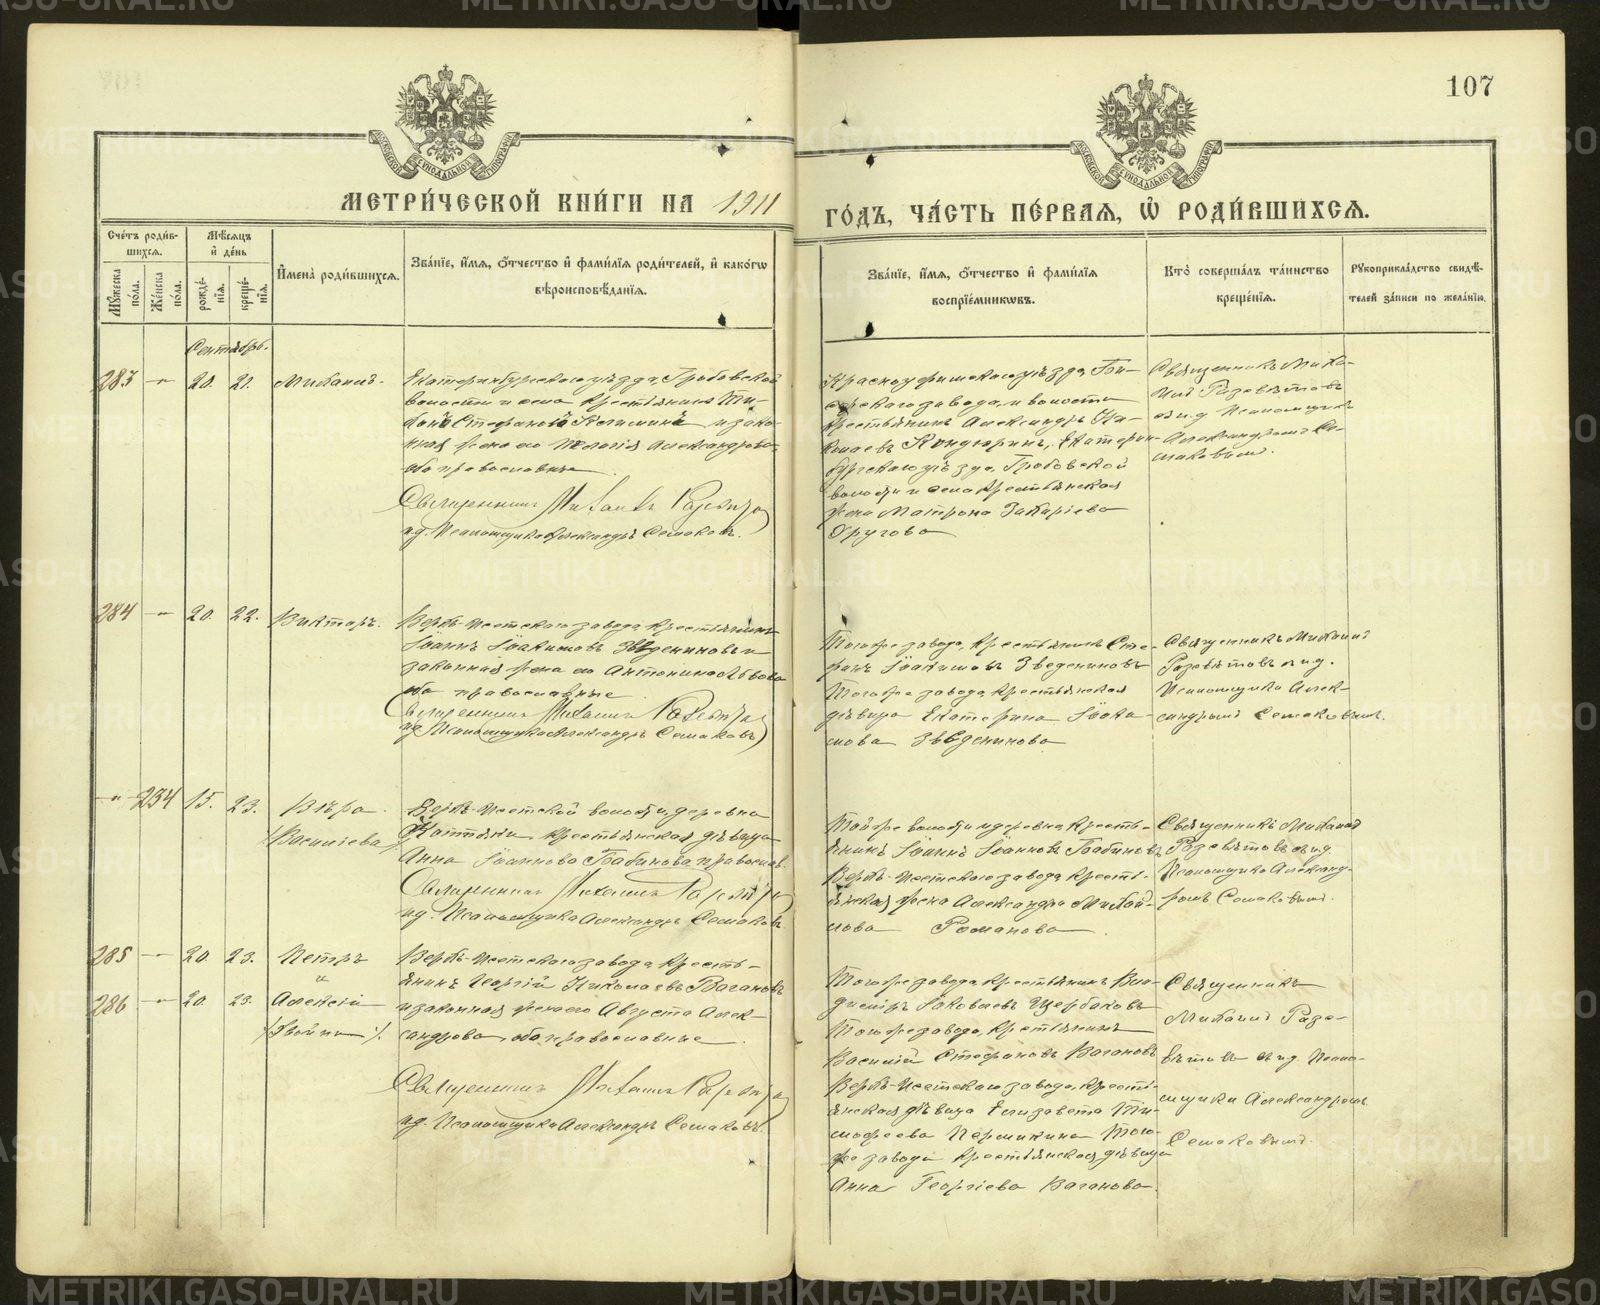 107
МЕТРИ́ЧЕСКОЙ КНИ́ГИ НА 1911
ГО́ДЪ, ЧА́СТЬ ПЕ́РВАЯ, Ѡ҆ РОДИ́ВШИХСЯ.
Сче́тъ роди́в-
шихся.
Му́жеска по́ла.
Же́нска по́ла.
Мѣ́сяцъ
и҆ де́нь
рожде́-
нїя.
креще́-
нїя.
И҆мена̀ роди́вшихся.
Зва́нїе, и҆́мя, ѻ҆́тчество и҆ фами́лїя роди́телей, и҆ како́гѡ
вѣроисповѣ́данїя.
Зва́нїе, и҆́мя, ѻ҆́тчество и҆ фами́лїя
воспрїе́мникѡвъ.
Кто̀ соверша́лъ та́инство
креще́нїя.
Рукоприкла́дство свидѣ́-
телей за́писи по жела́нїю.
Сентябрь.
283 - " 20. 21. Михаилъ.
Екатеринбургскаго уѣзда, Гробовской
волости и села крестьянинъ Ти-
хонъ Стефановъ и зако-
нная жена его Пелагія Александрова
оба православные
Священникъ Михаилъ Разсвѣтовъ
и.д. Псаломщика Александръ Семаковъ.
Красноуфимскаго уѣзда, Би-
сертскаго завода, и волости
крестьянинъ Александръ Ни-
колаевъ Кондюринъ, Екатерин-
бургскаго уѣзда, Гробовской
волости и села крестьянская
жена Матрона Захаріева
Другова
Священникъ Миха-
илъ Разсвѣтовъ
съ и.д. Псаломщика
Александромъ Се-
маковымъ.
284 - " 20. 22. Викторъ.
Верхъ-Исетскаго завода, крестьянинъ
Іоаннъ Іоакимовъ Звѣдениновъ и
законная жена его Антонина Львова
оба православные
Священникъ Михаилъ Разсвѣтовъ
и.д. Псаломщика Александръ Семаковъ
Тогоже завода, крестьянинъ Сте-
фанъ Іоакимовъ Звѣдениновъ
Тогоже завода, крестьянская
дѣвица Екатерина Іоаки-
мова Звѣденинова
Священникъ Михаилъ
Разсвѣтовъ съ и.д.
Псаломщика Алек-
сандромъ Семаковымъ.
- " - 234 15. 23. Вѣра
(Васильева)
Верхъ-Исетской волости, деревни
крестьянская дѣвица
Анна Іоаннова Бабинова православ.
Священникъ Михаилъ Разсвѣтовъ
и.д. Псаломщика Александръ Семаковъ
Тойже волости и деревни, кресть-
янинъ Іоаннъ Іоанновъ Бабиновъ
Верхъ-Исетскаго завода, кресть-
янская жена Александра Михай-
лова Романова
Священникъ Михаилъ
Разсвѣтовъ съ и.д.
Псаломщика Александ-
ромъ Семаковымъ.
285 - " 20. 23. Петръ
и
286 - " 20. 23. Алексій
(Двойни).
Верхъ-Исетскаго завода, кресть-
янинъ Георгій Николаевъ Вагановъ
и законная жена его Августа Алек-
сандрова, оба православные.
Священникъ Михаилъ Разсвѣтовъ
и.д. Псаломщика Александръ Семаковъ.
Тогоже завода, крестьянинъ Вла-
диміръ Іаковлевъ Щербаковъ
Тогоже завода, крестьянинъ
Василій Стефановъ Вагановъ
Верхъ-Исетскаго завода, кресть-
янская дѣвица Елизавета Ти-
мофеева Пермикина Того-
же завода крестьянская дѣвица
Анна Георгіева Ваганова.
Священникъ
Михаилъ Разс-
вѣтовъ съ и.д. Псало-
мщика Александромъ
Семаковымъ.
METRIKI.GASO-URAL.RU